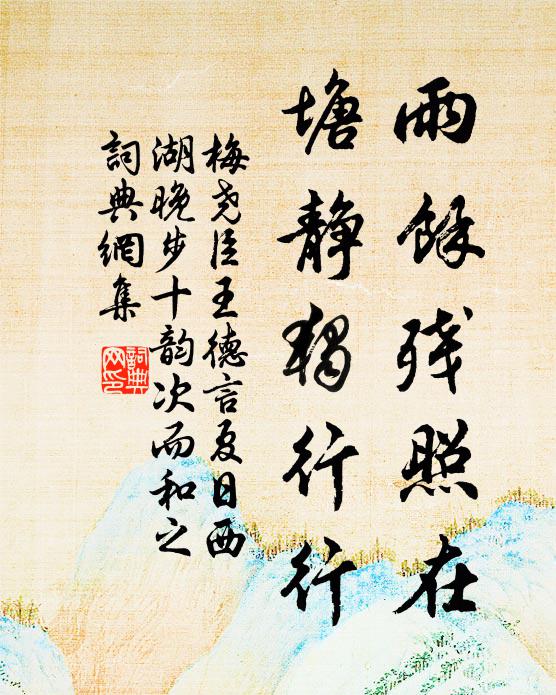 雨餘殘照在
塘静獨行行
梅堯臣王德言夏日西
湖晚步十韵次而和之
詞典網集
詞典網印